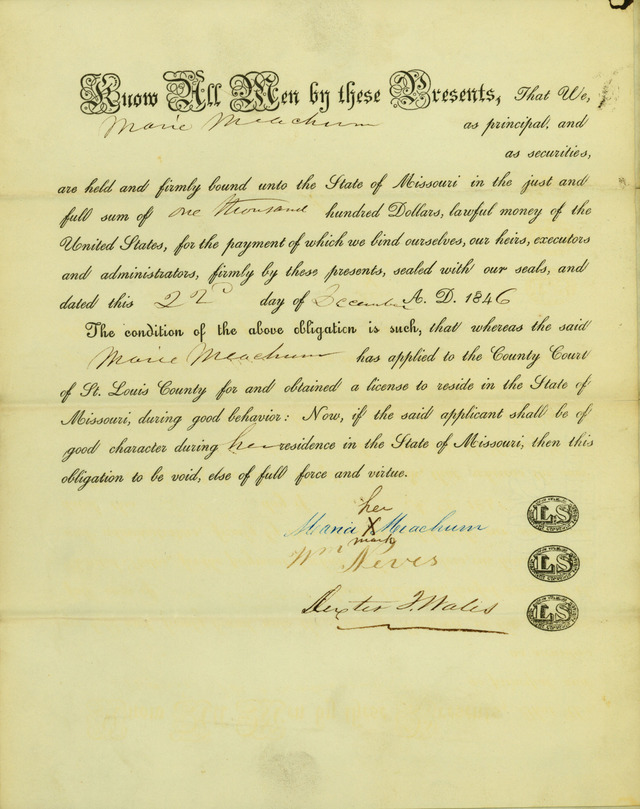 Know All Men by these Presents, That We,
Marie Meachum as principal, and
as securities,
are held and firmly bound unto the State of Missouri in the just and
full sum of one thousand hundred Dollars, lawful money of the
United States, for the payment of which we bind ourselves, our heirs, executors
and administrators, firmly by these presents, sealed with our seals, and
dated this 22d day of December A. D. 1846
The condition of the above obligation is such, that whereas the said
Marie Meachum has applied to the County Court
of St. Louis County for and obtained a license to reside in the State of
Missouri, during good behavior: Now, if the said applicant shall be of
good character during her residence in the State of Missouri, then this
obligation to be void, else of full force and virtue.
her
Maria X Meachum LS
mark
Wm Nevis LS
Dexter J. Wales LS